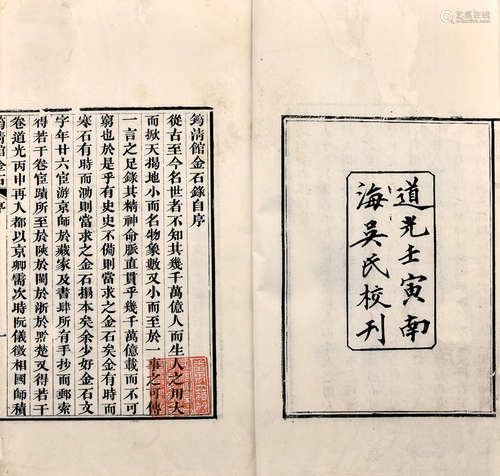 道光壬寅南
海吳氏校刊
筠清館金石錄自序
從古至今名世者不知其幾千萬億人而生人之用大
而掀天揭地小而名物象數又小而至於一事之可傳
一言之足錄其精神命脈直貫乎幾千萬億載而不可
窮也於是乎有史史不備則當求之金石矣金有時而
寒石有時而泐則當求之金石搨本矣余少好金石文
字年廿六宦游京師於藏家及書肆所有手抄而郵索
得若干卷宦蹟所至於陝於閩於浙於黔楚又得若干
卷道光丙申再入都以京卿需次時阮儀徵相國師積
筠清館金石 序 一